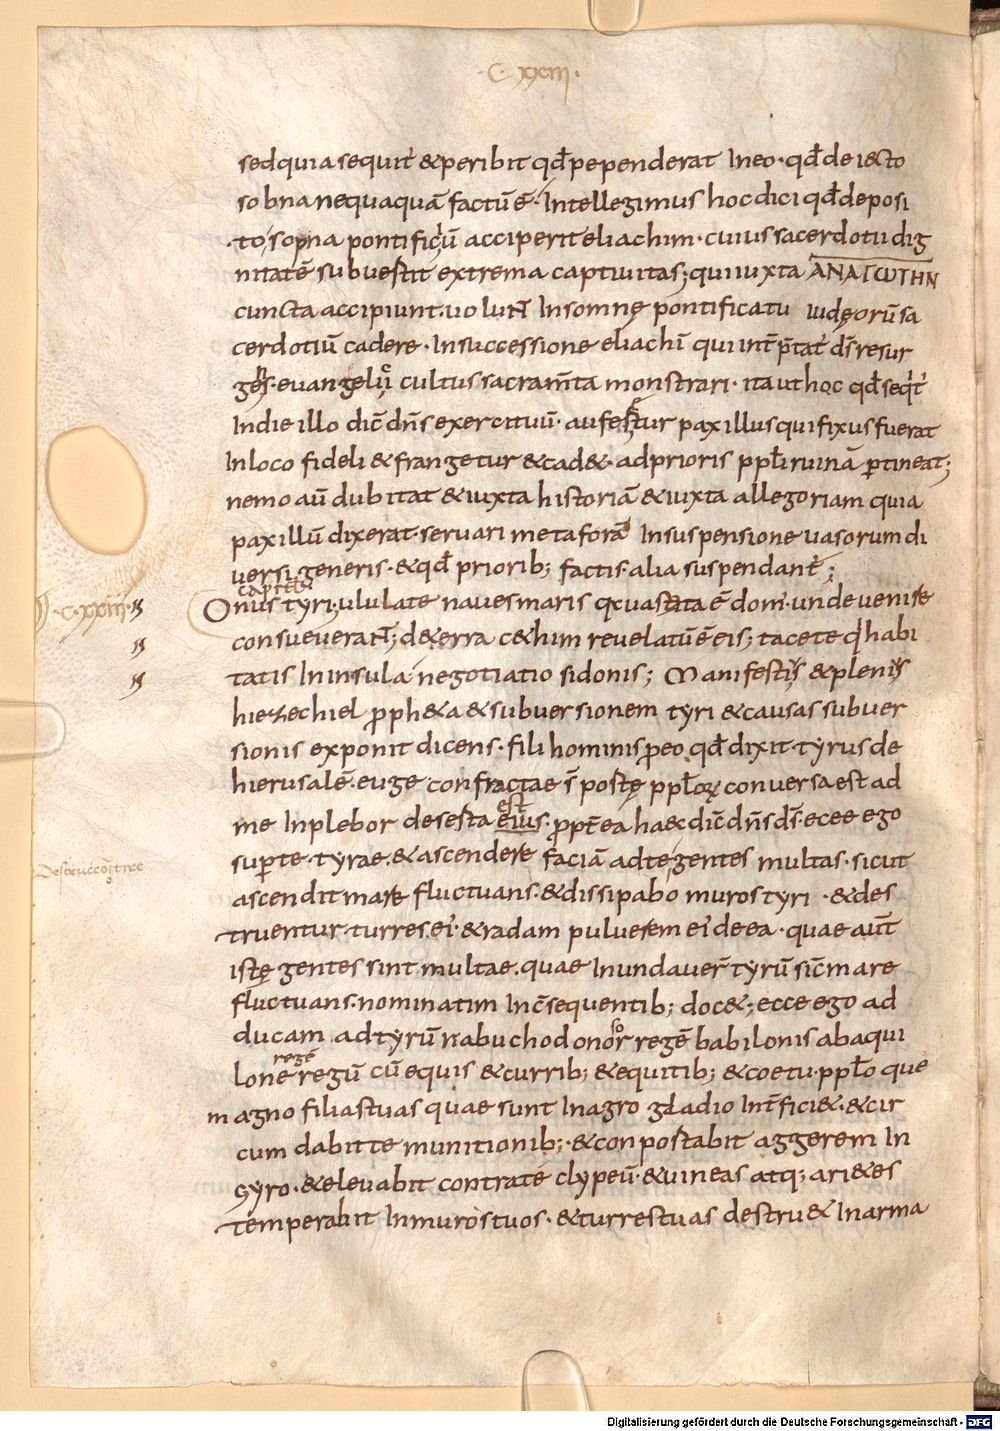 ·C·xxiii·
sed quia sequit̄ & peribit qđ pependerat In eo· qđ deiecto
sobna nequaquā factū ē· Intellegimus hoc dici qđ deposi
to sopna pontificiū acciperit eliachim· cuius sacerdotii dig
nitatē subvestit extrema captiuitas; qui iuxta ΑΝΑΓΩΓΗΝ
cuncta accipiunt· uolunt Insomnę pontificatu iudęorū sa
cerdotiū cadere· In successione eliachī qui int̄p̄tat̄ dī resur
gens· euangelii cultus sacram̄ta monstrari· ita ut hoc qđ seqit̄
In die illo dic̄ dn̄s exercituū· auferetur paxillus qui fixus fuerat
In loco fideli & frangetur & cad&· ad prioris ppłi ruinā ꝑtineat;
nemo aū dubitat & iuxta historiā & iuxta allegoriam quia
paxillū dixerat· servari metaforā In suspensione uasorum di
versi generis· & qđ priorib; factis· alia suspendant̄;
capitel
C·xxiiii· Onus tyri· ululate naues maris q̄ vastata ē dom̄· unde venire
consueverant; de terra c&him revelatū ē eis; tacete q̄ habi
tatis In insula negotiatio sidonis; Manifestiꝰ & pleniꝰ
hiezechiel ꝓph&a & subuersionem tyri & causas subuer
sionis exponit dicens· fili hominis ꝓ eo qđ dixit tyrus de
hierusalē· euge confractae s̄ portę ppłorū conversa est ad
me Inplebor deserta est eius· ꝓpt̄ea haec dic̄ dn̄s ds̄· ecce ego
suꝑ te tyrae· & ascendere faciā ad te gentes multas· sicut
Destruccōi tyree
ascendit mare fluctuans· & dissipabo muros tyri· & des
truentur turres ei· & radam puluerem ei de ea· quae aūt
istę gentes sint multae· quae Inundaver̄ tyrū sic̄ mare
fluctuans· nominatim In c̄sequentib; doc&; ecce ego ad
ducam ad tyrū nabuchodonosor regē babilonis ab aqui
lone regē regū cū equis & currib; & equitib; & coetu· ppło que
magno filias tuas quae sunt In agro gladio Int̄fici&· & cir
cumdabit te munitionib;· & conportabit aggerem In
gyro· & elevabit contra te clypeū· & uineas atq; ari&es
temperabit In muros tuos· & turres tuas destru& In arma
Digitalisierung gefördert durch die Deutsche Forschungsgemeinschaft - DFG